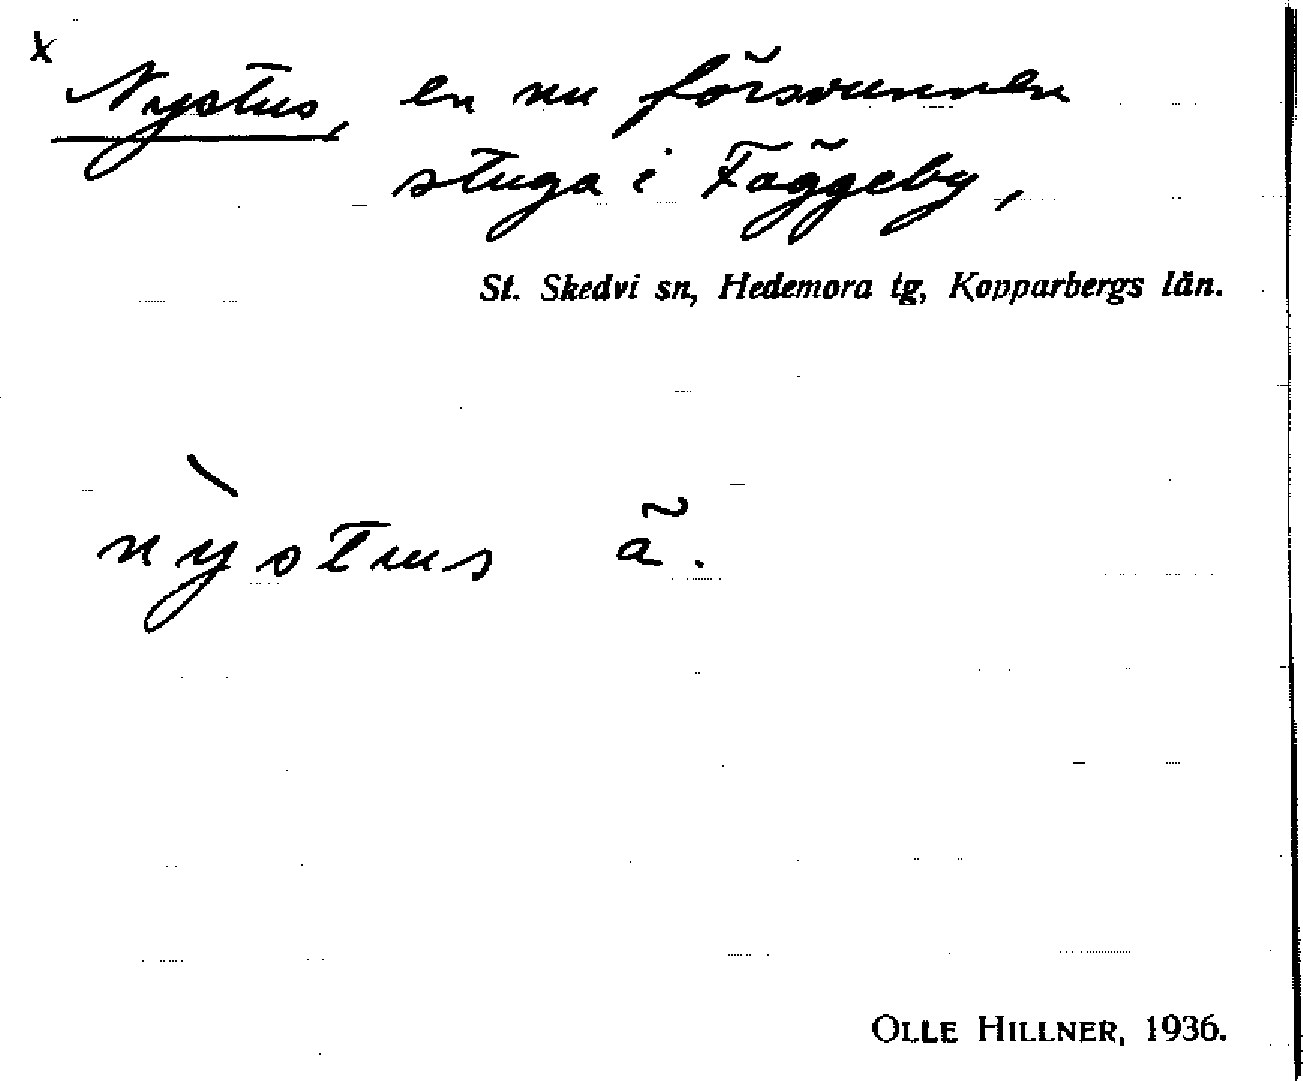 x
Nystus, en nu försvunnen
stuga i Fäggeby,
St. Skedvi sn, Hedemora tg, Kopparbergs län.
nỳstus ã.
OLLE HILLNER, 1936.